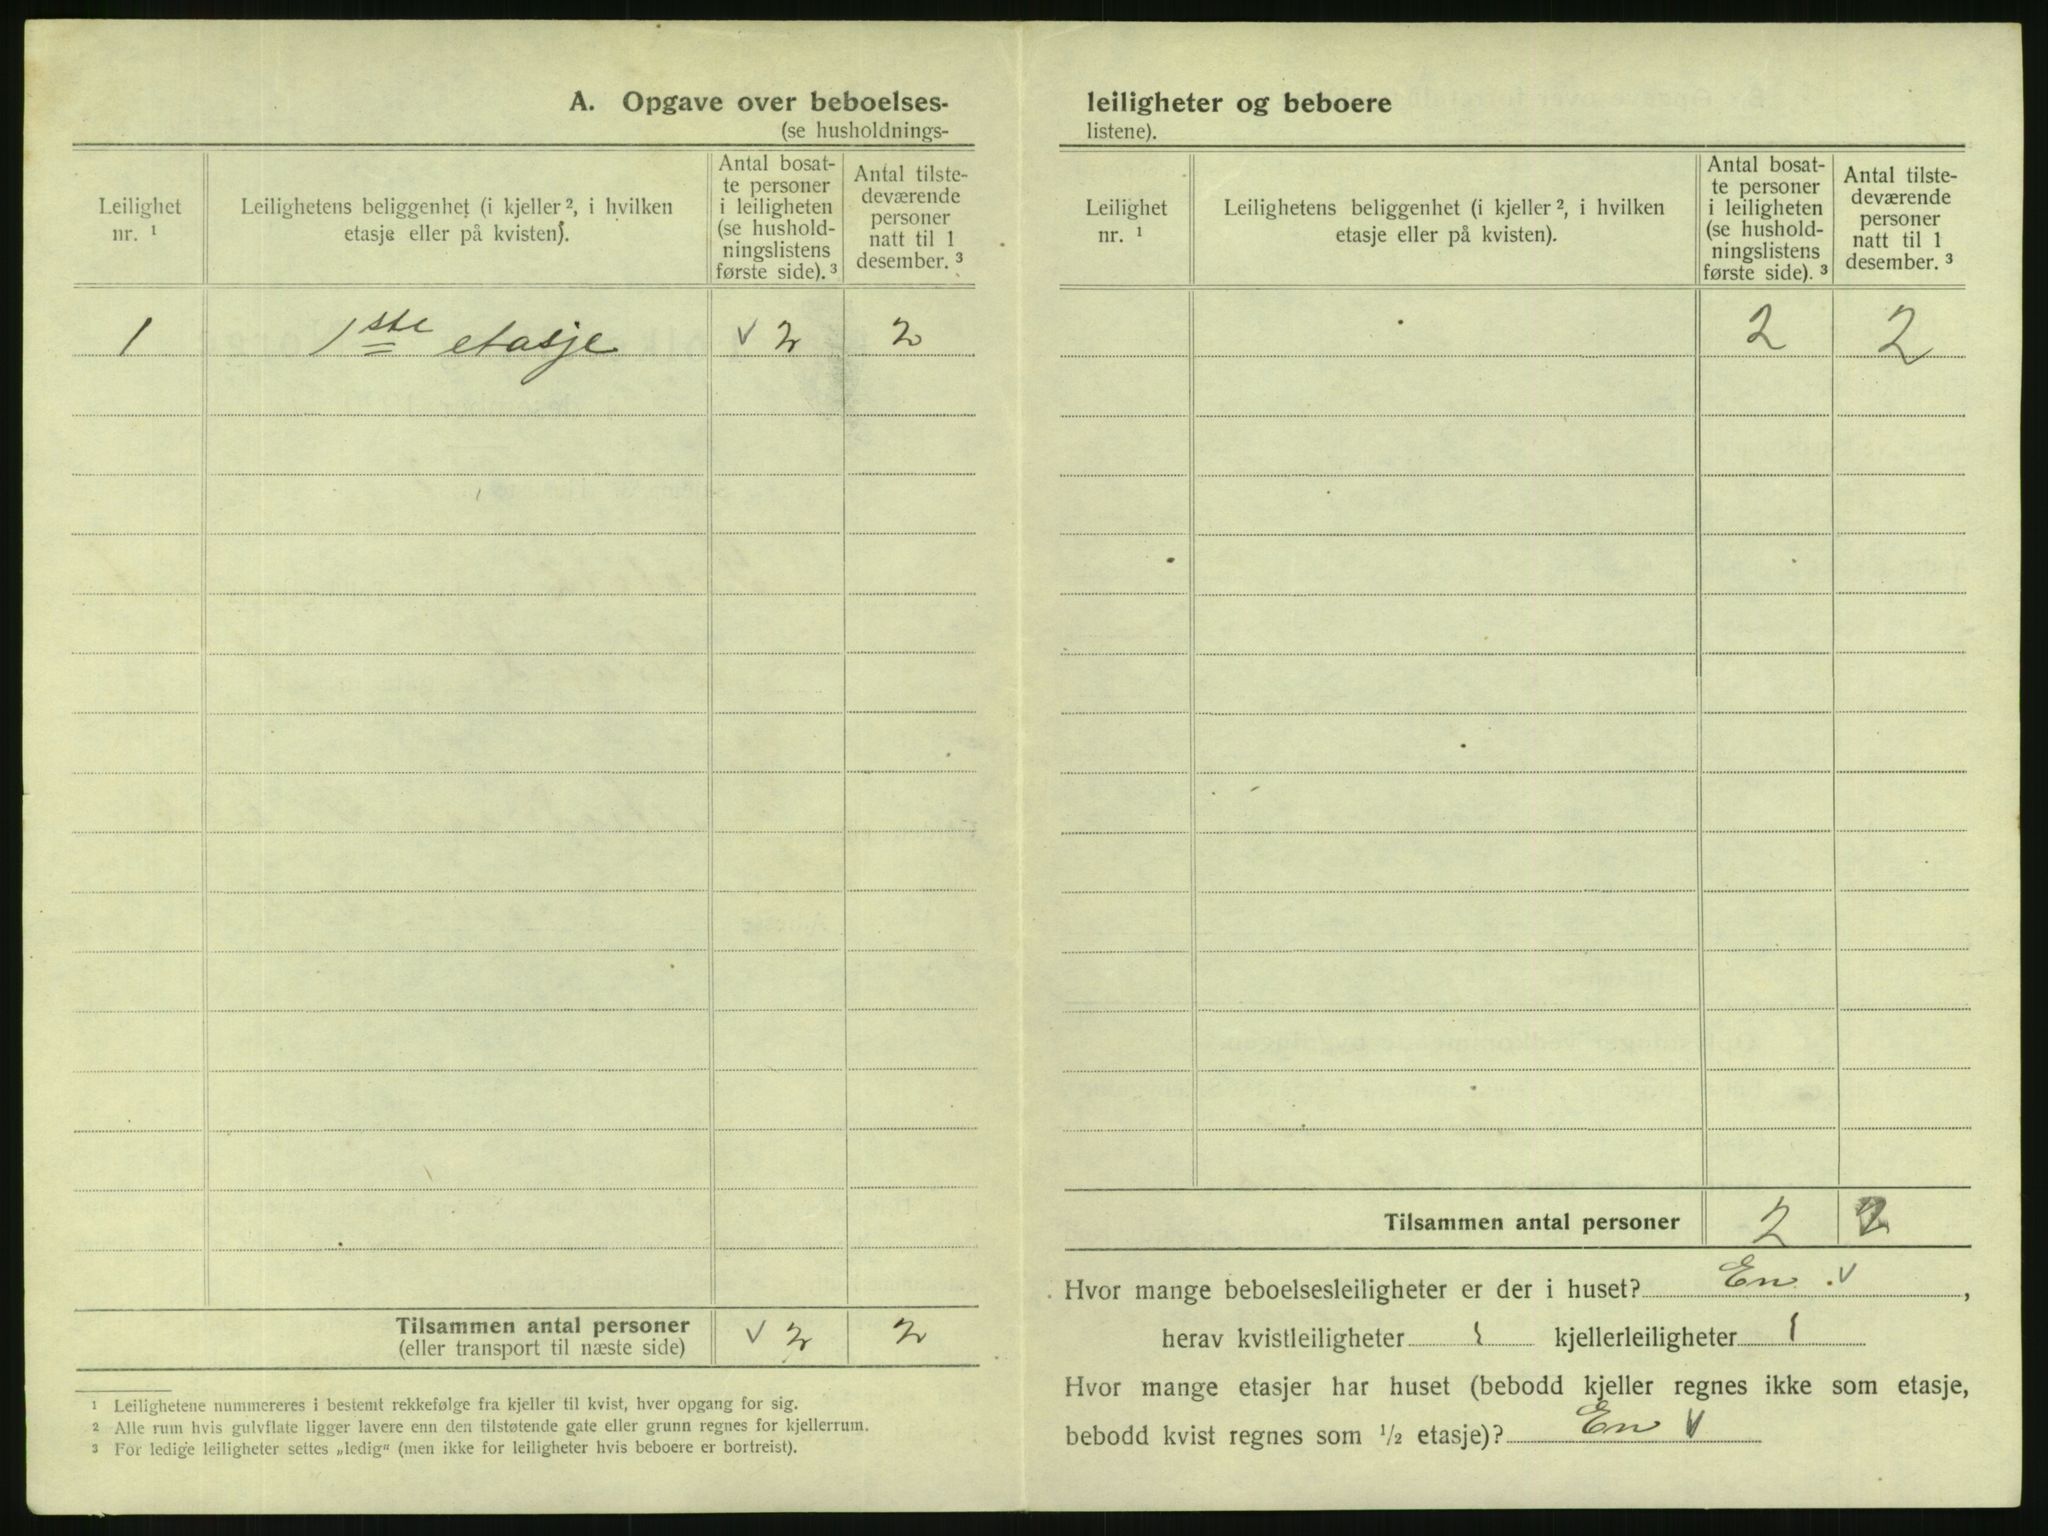 A. Opgave over beboelses-
(se husholdnings-
Leilighet nr. ¹
Leilighetens beliggenhet (i kjeller ², i hvilken etasje eller på kvisten).
Antal bosat-
te personer
i leiligheten
(se hushold-
ningslistens
første side). ³
Antal tilste-
deværende
personer
natt til 1
desember. ³
1 1ste etasje v 2 2
Tilsammen antal personer v 2 2
(eller transport til næste side)
¹ Leilighetene nummereres i bestemt rekkefølge fra kjeller til kvist, hver opgang for sig.
² Alle rum hvis gulvflate ligger lavere enn den tilstøtende gate eller grunn regnes for kjellerrum.
³ For ledige leiligheter settes „ledig“ (men ikke for leiligheter hvis beboere er bortreist).
leiligheter og beboere
listene).
Leilighet nr. ¹
Leilighetens beliggenhet (i kjeller ², i hvilken etasje eller på kvisten).
Antal bosat-
te personer
i leiligheten
(se hushold-
ningslistens
første side). ³
Antal tilste-
deværende
personer
natt til 1
desember. ³
2 2
Tilsammen antal personer 2 2
Hvor mange beboelsesleiligheter er der i huset? En v,
herav kvistleiligheter kjellerleiligheter
Hvor mange etasjer har huset (bebodd kjeller regnes ikke som etasje,
bebodd kvist regnes som ½ etasje)? En v